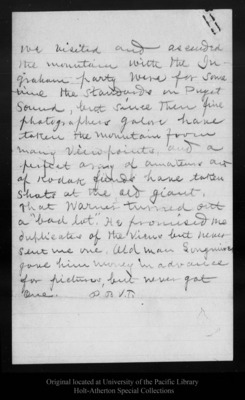 We visited and ascended
the mountain with the In-
graham party were for some
time the standards on Puget
Sound, but since then fine
photographers galore have
taken the mountain from
many viewpoints, and a
perfect army of amateurs
of Kodak have taken
shots at the old giant.
That Warner turned out
a "bad lot." He promised me
duplicates of the views but never
sent me one. Old man Longmire
gave him money in advance
for pictures, but never got
one. P.B.V.T.
Original located at University of the Pacific Library
Holt-Atherton Special Collections